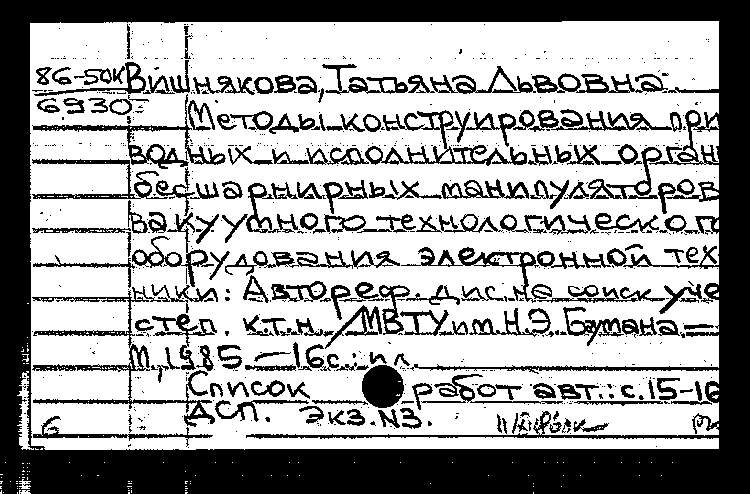 86-50к Вишнякова, Татьяна Львовна.
6930=
Методы конструирования при
водных и исполнительных орган
бесшарнирных манипуляторов
вакуумного технологического
оборудования электронной тех
ники: Автореф. дис. на соиск уче
степ. к.т.н. /МВТУ им. Н.Э. Баумана.—
М, 1985.—16с.: ил.
Список работ авт.: с.15-16
ДСП. Экз. N3.
6